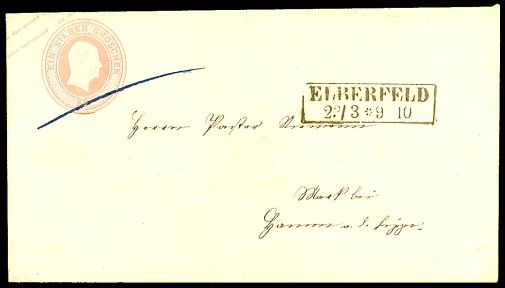 EIN SILBER GROSCHEN
ELBERFELD
2?/3 * 9 10
Herrn Pastor Niemann
Mark bei
Hamm a. d. Lippe.